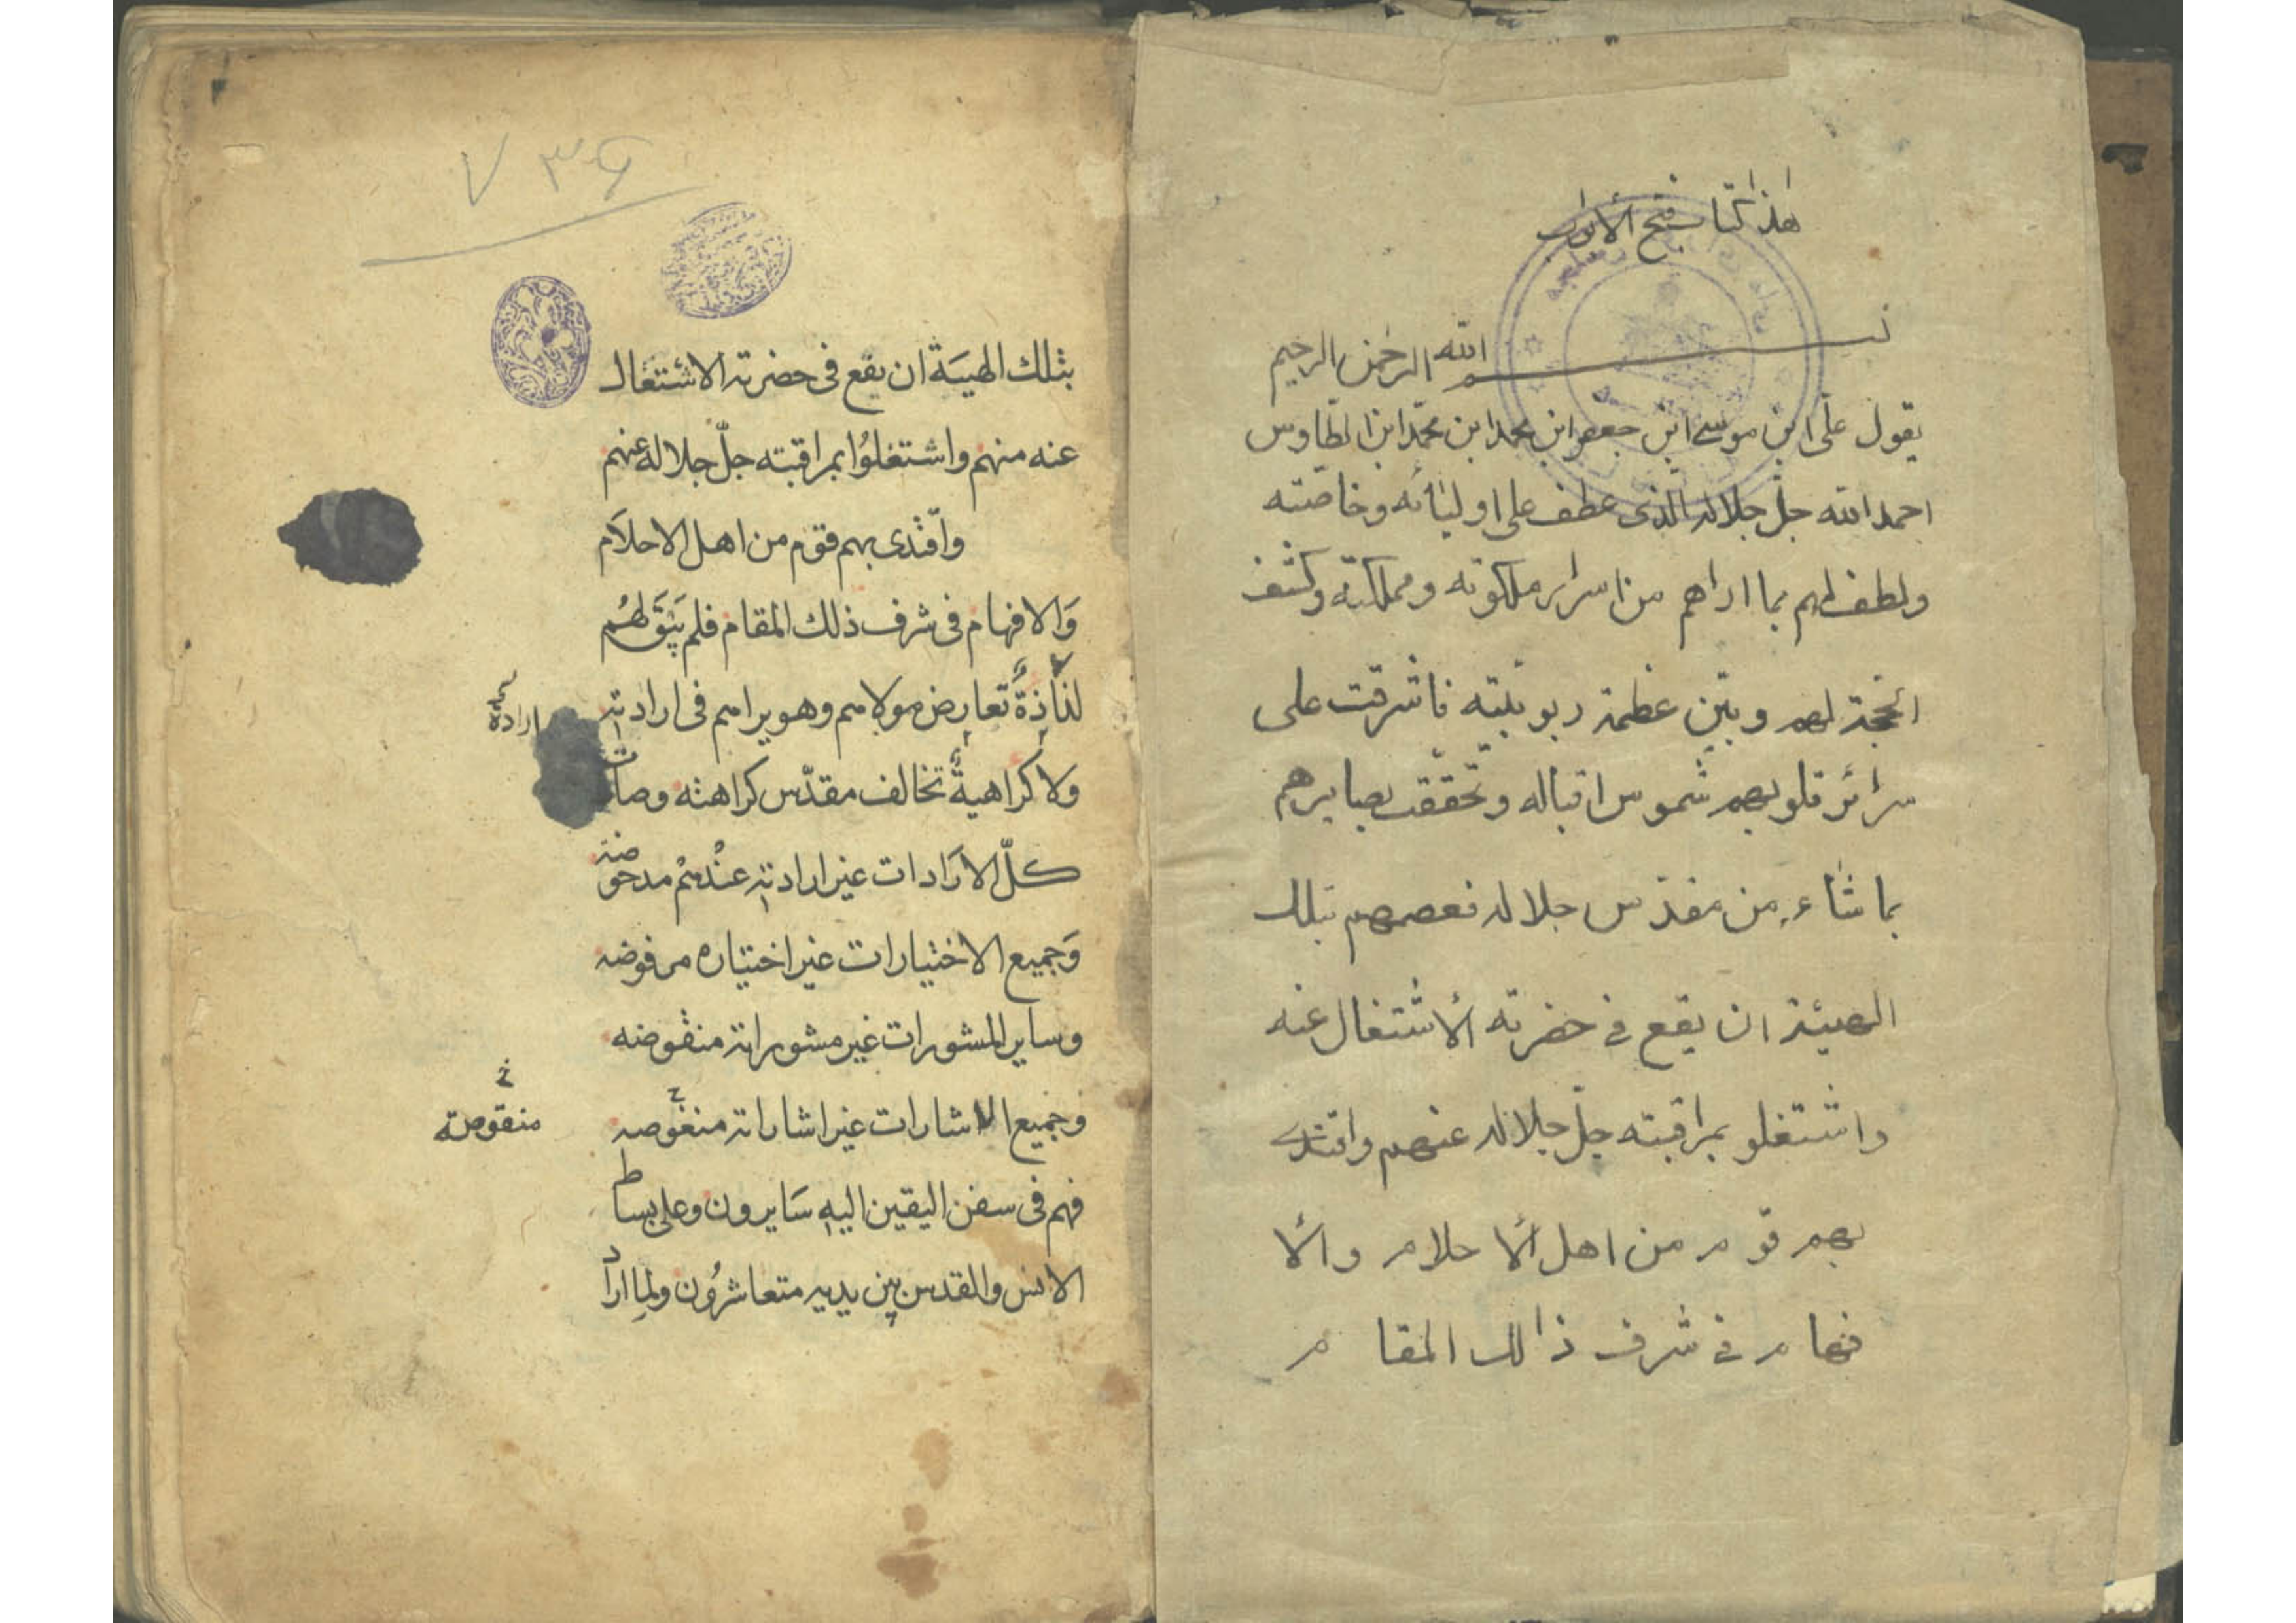 هذا كتاب فتح الأبواب
بسم الله الرحمن الرحيم
يقول علي ابن موسى ابن جعفر ابن محمد ابن محمد ابن الطاوس
احمد الله جلّ جلاله الذى عطف على اوليائه وخاصّته
ولطف لهم بما اراهم من اسرار ملكوته ومملكته وكشف
الحجة لهم وبيّن عظمة ربوبيّته فاشرقت على
سرائر قلوبهم شموس اقباله وتحقّقت بصايرهم
بما شاء من مقدّس جلاله فعصمهم بتلك
الهيئة ان يقع في حضرته ألاشتغال عنه
واشتغلو بمراقبته جلّ جلاله عنهم واقتدى
بهم قوم من اهل ألاحلام وألا
فهام في شرف ذالك المقام
۷۳۶
بتلك الهيبَة ان يقع فى حضرته الاشتغال
عنه منهم واشتغلوُا بمراقبته جلّ جلاله عنهم
واقتدى بهم قوم من اهل الاحلَام
وَالافهام فى شرف ذلك المقام فلم يَبْقَ لهُم
تعارض مولاهم وهو يراهم فى ارادته
ارادةٌ
ولا كراهيةٌ تخالف مقدّس كراهته وصات
كلّ الارَادات غير ارادته عنْدهمْ مدحوضة
وَجميع الاختيارات غير اختياره مرفوضه
وساير المشورات غير مشوراته منقوضه
وجميع الاشارات غير اشاراته منغوصه
خ
منقوصة
فهم فى سفن اليقين اليه سَايرون وعلى بساط
الانس والقدس بين يديه متعاشرُون ولما اراد